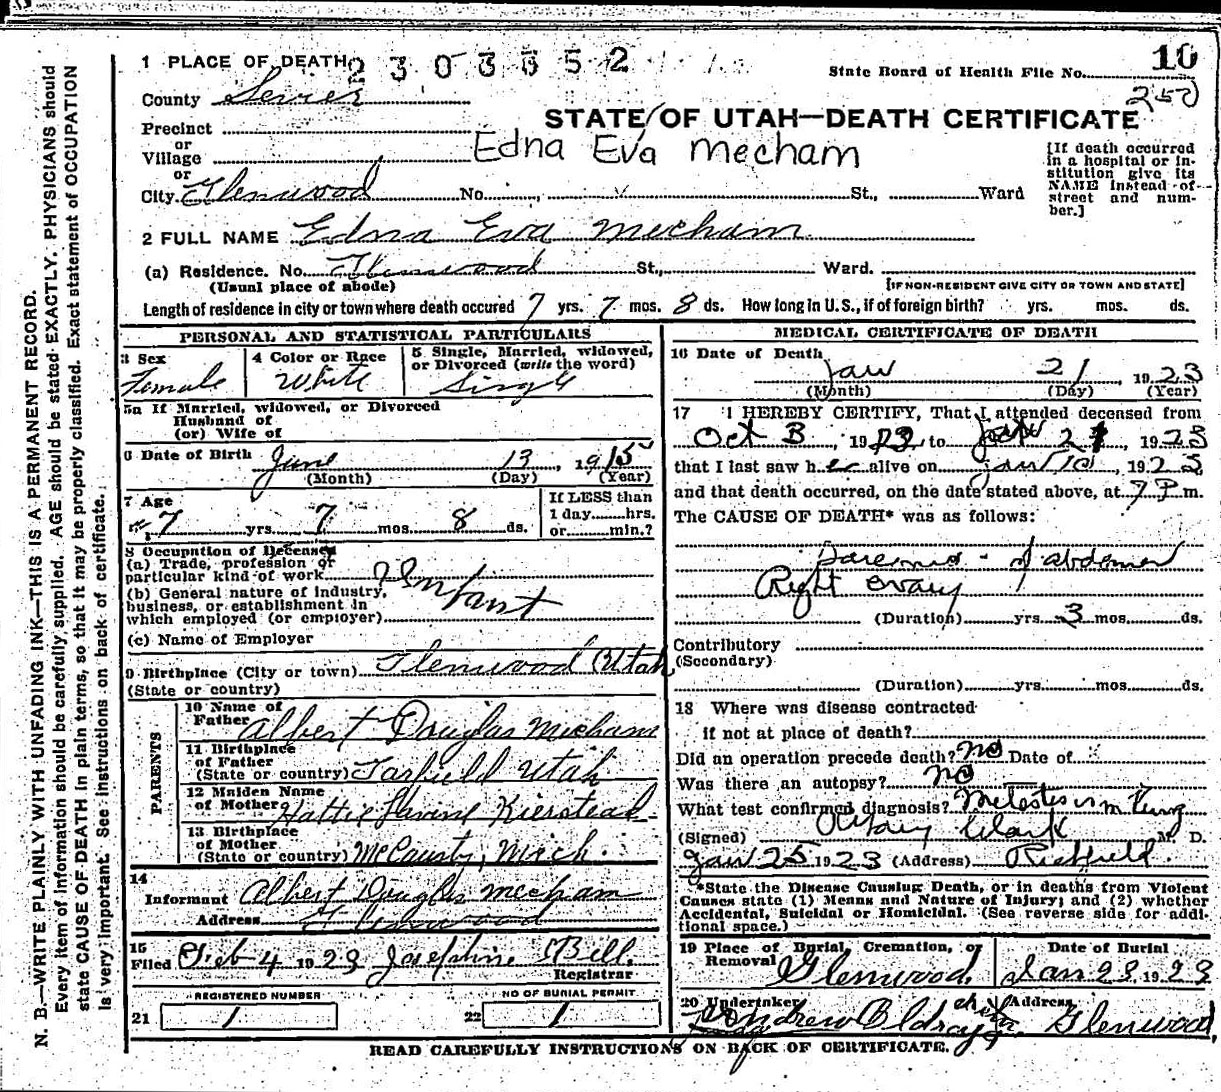 230352
10
1 PLACE OF DEATH
State Board of Health File No.
250
County Sevier
STATE OF UTAH—DEATH CERTIFICATE
Precinct
or
Village
Edna Eva Mecham
or
City. Glenwood No. St., Ward
[If death occurred
in a hospital or in-
stitution give its
NAME instead of
street and num-
ber.]
2 FULL NAME Edna Eva Mecham
(a) Residence. No. Glenwood St., Ward.
(Usual place of abode)
[IF NON-RESIDENT GIVE CITY OR TOWN AND STATE]
Length of residence in city or town where death occured 7 yrs. 7 mos. 8 ds. How long in U. S., if of foreign birth? yrs. mos. ds.
PERSONAL AND STATISTICAL PARTICULARS
3 Sex
Female
4 Color or Race
White
5 Single, Married, widowed,
or Divorced (write the word)
Single
5a If Married, widowed, or Divorced
Husband of
(or) Wife of
6 Date of Birth June 13, 1915
(Month) (Day) (Year)
7 Age
7 yrs. 7 mos. 8 ds.
If LESS than
1 day hrs.
or min.?
8 Occupation of Deceased
(a) Trade, profession or
particular kind of work
Infant
(b) General nature of industry,
business, or establishment in
which employed (or employer)
(c) Name of Employer
9 Birthplace (City or town) Glenwood Utah
(State or country)
PARENTS
10 Name of
Father Albert Douglas Mecham
11 Birthplace
of Father
(State or country) Utah
12 Maiden Name
of Mother Hattie Kierstead
13 Birthplace
of Mother
(State or country) Mich.
14
Informant Albert Douglas Mecham
Address Glenwood
15
Filed Feb 4 1923 Josephine Bell
Registrar
REGISTERED NUMBER
21 1
NO OF BURIAL PERMIT
22 1
MEDICAL CERTIFICATE OF DEATH
16 Date of Death
Jan 21 1923
(Month) (Day) (Year)
17 I HEREBY CERTIFY, That I attended deceased from
Oct 3, 19 to Jan 21, 1923
that I last saw her alive on Jan 10, 1923
and that death occurred, on the date stated above, at 7 P.m.
The CAUSE OF DEATH* was as follows:
of abdomen
Right ovary
(Duration) yrs. 3 mos. ds.
Contributory
(Secondary)
(Duration) yrs. mos. ds.
18 Where was disease contracted
if not at place of death?
Did an operation precede death? no Date of
Was there an autopsy? no
What test confirmed diagnosis?
(Signed) Clark M. D.
Jan 25 1923 (Address) Richfield
*State the Disease Causing Death, or in deaths from Violent
Causes state (1) Means and Nature of Injury; and (2) whether
Accidental, Suicidal or Homicidal. (See reverse side for addi-
tional space.)
19 Place of Burial, Cremation, or
Removal Glenwood.
Date of Burial
Jan 23 1923
20 Undertaker Andrew Address
Glenwood
READ CAREFULLY INSTRUCTIONS ON BACK OF CERTIFICATE.
N. B.—WRITE PLAINLY WITH UNFADING INK—THIS IS A PERMANENT RECORD.
Every item of information should be carefully supplied. AGE should be stated EXACTLY. PHYSICIANS should
state CAUSE OF DEATH in plain terms, so that it may be properly classified. Exact statement of OCCUPATION
is very important. See instructions on back of certificate.